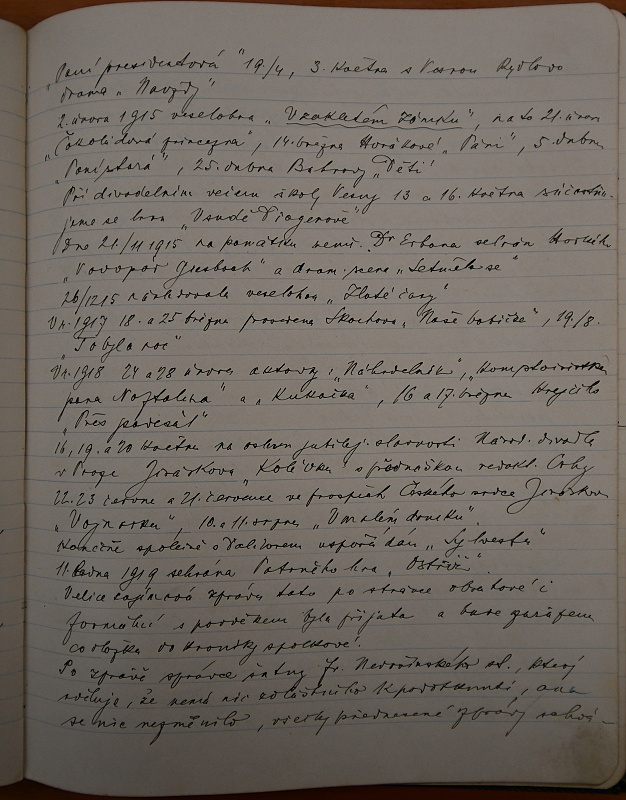 „Paní presidentová" 19/4, 3. května s Vesnou Rydlovo
drama „Navždy"
2. února 1915 veselohra „V zakletém zámku", na to 21. února
„Čokoládová princezna", 14. března Horákové „Páni", 5. dubna
25. dubna „Děti"
Při divadelním večeru školy Vesny 13 a 16. května súčastňu-
jeme se hrou „Vsudé
Dne 21/11 1915 na památku zemř. Dr Erbena sehrán
a dram. scena „Setmělo se"
26/12 15 následovala veselohra „Zlaté časy"
V r. 1917 18. a 25 března provedena Škochova „Naše babička", 19/8.
„To byla noc"
V r. 1918 24 a 28 února aktovky: „Náhrdelník",
pana Naftalina" a „Kukačka", 16 a 17. března Krejčího
„Přes padesát"
16, 19. a 20 května na oslavu jubilej. slavnosti Národ. divadla
v Praze Jiráskova „Kolébka" s přednáškou redakt.
22. 23 června a 21. července ve prospěch Českého srdce Jiráskova
„Vojnarka", 10. a 11. srpna „V malém domku".
Konečně společně s Dalihorem uspořádán „Sylvestr"
11. ledna 1919 sehrána Patrného hra „Ostříž".
Velice zajímavá zpráva tato po stránce obsahové i
formální s povděkem byla přijata a bude zařazena
co vložka do kroniky spolkové.
Po zprávě správce šatny Fr. ml., který
sděluje, že nemá nic zvláštního k podotknutí, ana
se nic nezměnilo, všechny přednesené zprávy schvá-